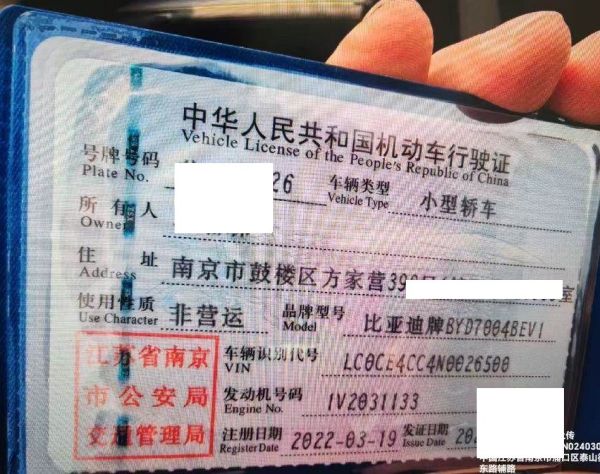 中华人民共和国机动车行驶证
Vehicle License of the People's Republic of China
号牌号码 26 车辆类型 小型轿车
Plate No. Vehicle Type
所有人
Owner
住址 南京市鼓楼区方家营39 室
Address
使用性质 非营运 品牌型号 比亚迪牌BYD7004BEV1
Use Character Model
江苏省南京 车辆识别代号 LC0CE4CC4N0026500
VIN
市公安局 发动机号码 1V2031133
Engine No.
交通管理局 注册日期 2022-03-19 发证日期 20
Register Date Issue Date
传
N024030
中国江苏省南京市浦口区泰山
东路辅路